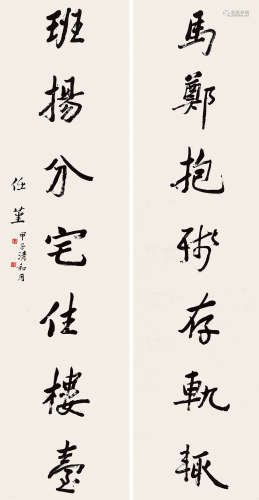 馬鄭抱殘存軌輒
班揚分宅住樓臺
任堇
甲子清和月